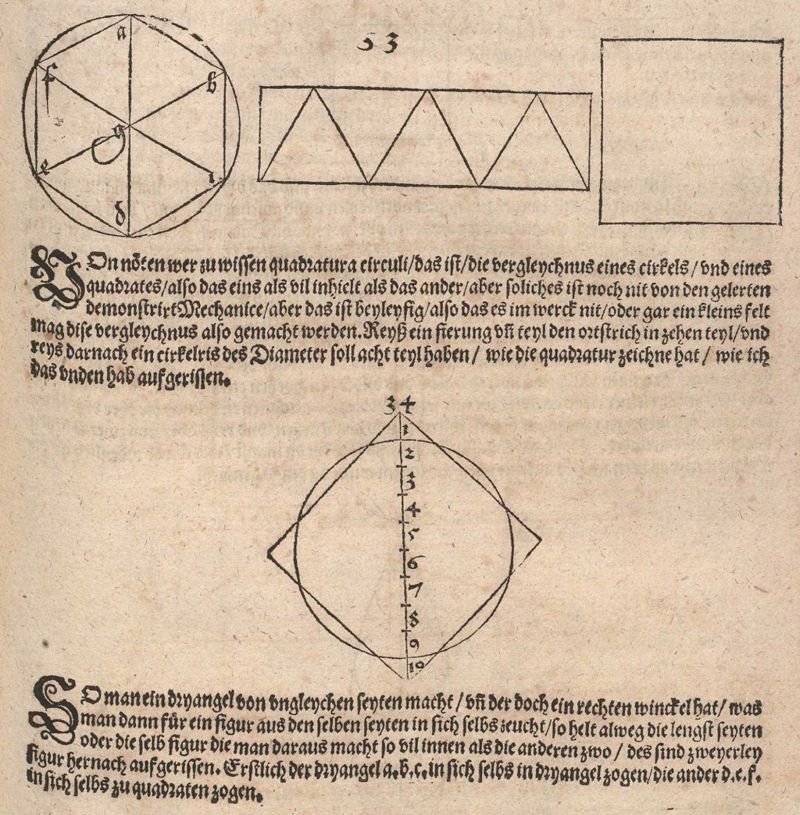 33
a
f
b
g
e
c
d
VOn nöten wer zu wissen quadratura circuli/das ist/die vergleychnus eines cirkels/vnd eines
quadrates/also das eins als vil inhielt als das ander/aber soliches ist noch nit von den gelerten
demonstrirt Mechanice/aber das ist beyleyfig/also das es im werck nit/oder gar ein kleins felt
mag dise vergleychnus also gemacht werden. Reyß ein fierung vñ teyl den ortstrich in zehen teyl/vnd
reys darnach ein cirkelris des Diameter soll acht teyl haben/ wie die quadratur zeichne hat/ wie ich
das vnden hab aufgerissen.
34
1
2
3
4
5
6
7
8
9
10
SO man ein dryangel von vngleychen seyten macht/vñ der doch ein rechten winckel hat/was
man dann für ein figur aus den selben seyten in sich selbs zeucht/so helt alweg die lengst seyten
oder die selb figur die man daraus macht so vil innen als die anderen zwo/ des sind zweyerley
figur hernach aufgerissen. Erstlich der dryangel a.b.c.in sich selbs in dryangel zogen/die ander d.e.f.
in sich selbs zu quadraten zogen.